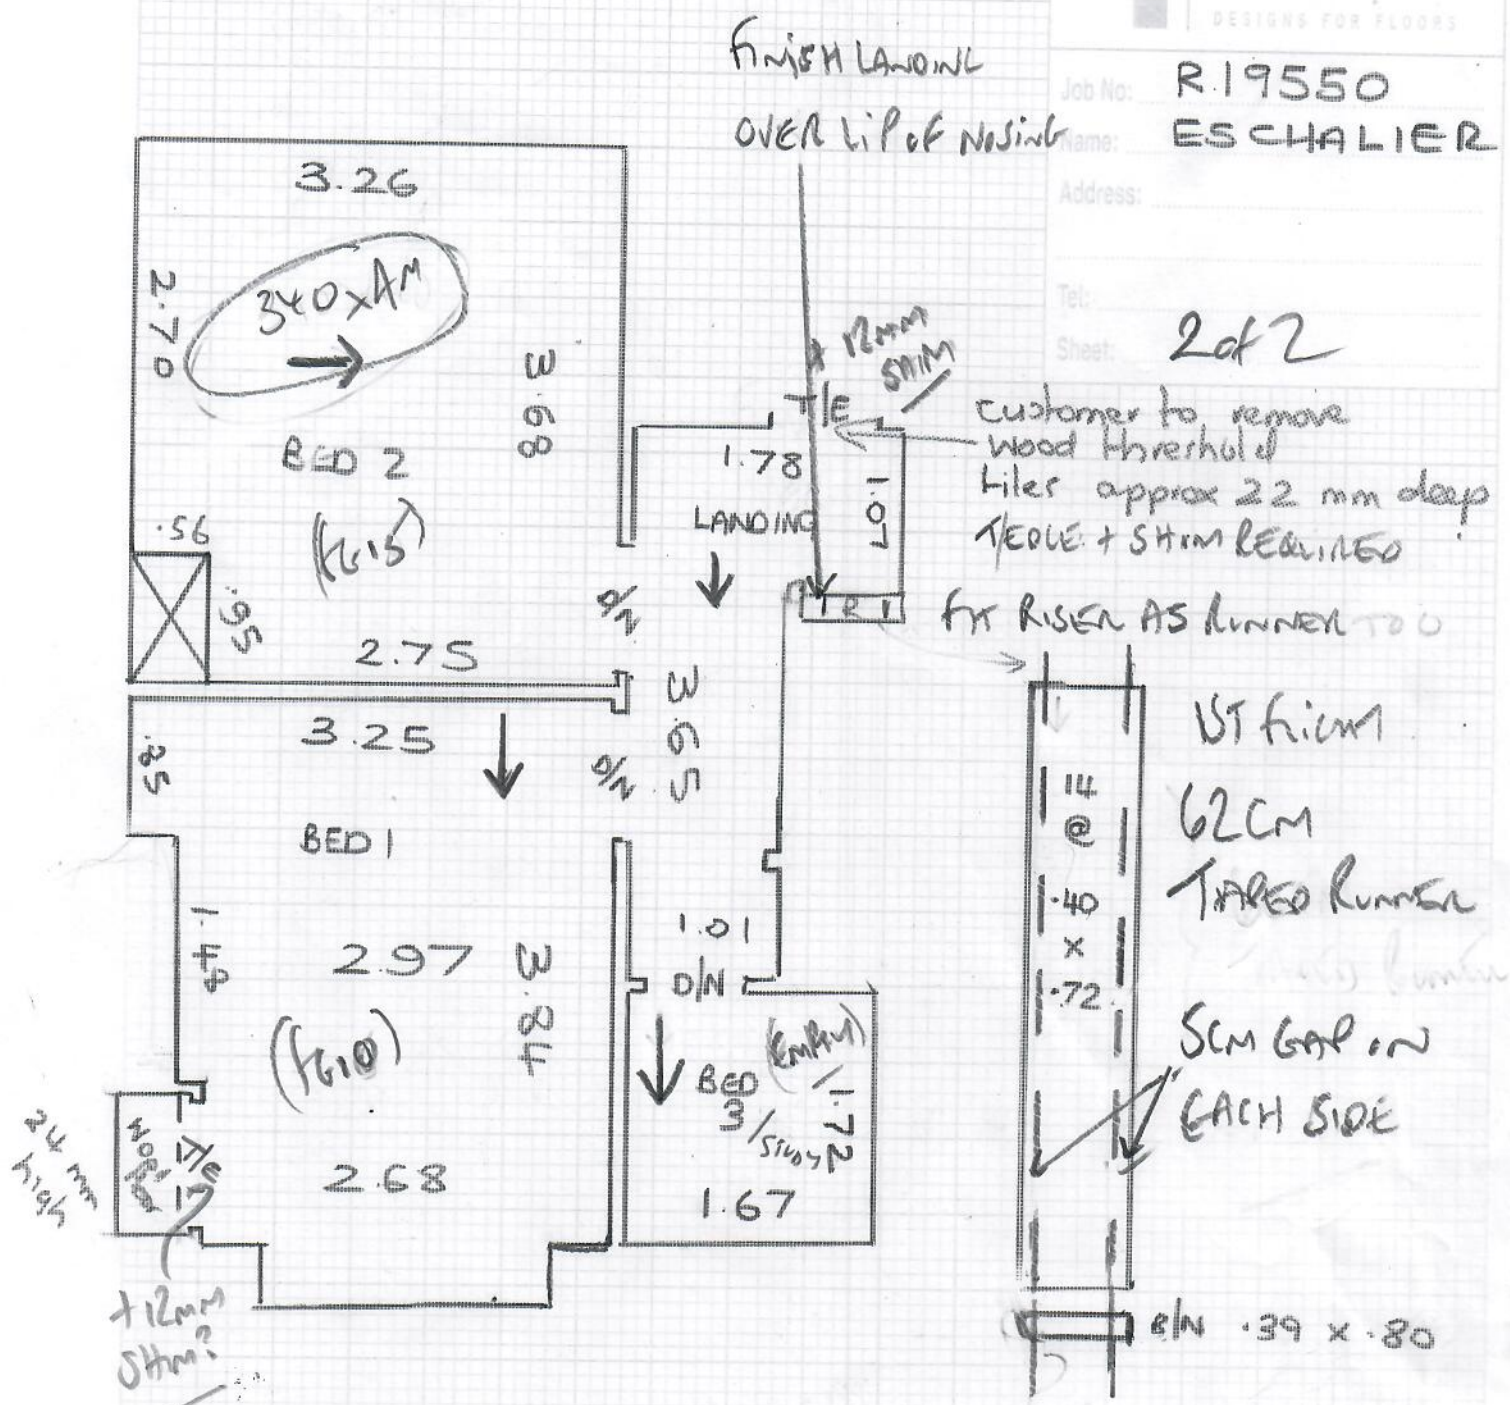 DESIGNS FOR FLOORS
Job No: R.19550
Name: ESCHALIER
Address:
Tel:
Sheet: 2 of 2
FINISH LANDING
OVER LIP OF NOSING
3.26
2.70
340 x AM
3.68
BED 2
.56
.95
2.75
D/N
+ 12mm
SHIM
T/E
1.78
LANDING
1.07
1 R 1
customer to remove
wood threshold
tiles approx 22 mm deep
T/EDGE + SHIM REQUIRED
FIT RISER AS RUNNER TOO
3.25
.85
D/N
3.65
BED 1
1.49
2.97
3.84
1.01
D/N
BED
3/STUDY
(EMPTY)
1.72
1.67
2.68
T/E
24 mm
+ 12mm
SHIM?
1ST FLIGHT
62CM
TAPED RUNNER
14
@
.40
x
.72
5CM GAP IN
EACH SIDE
B/N .39 x .80